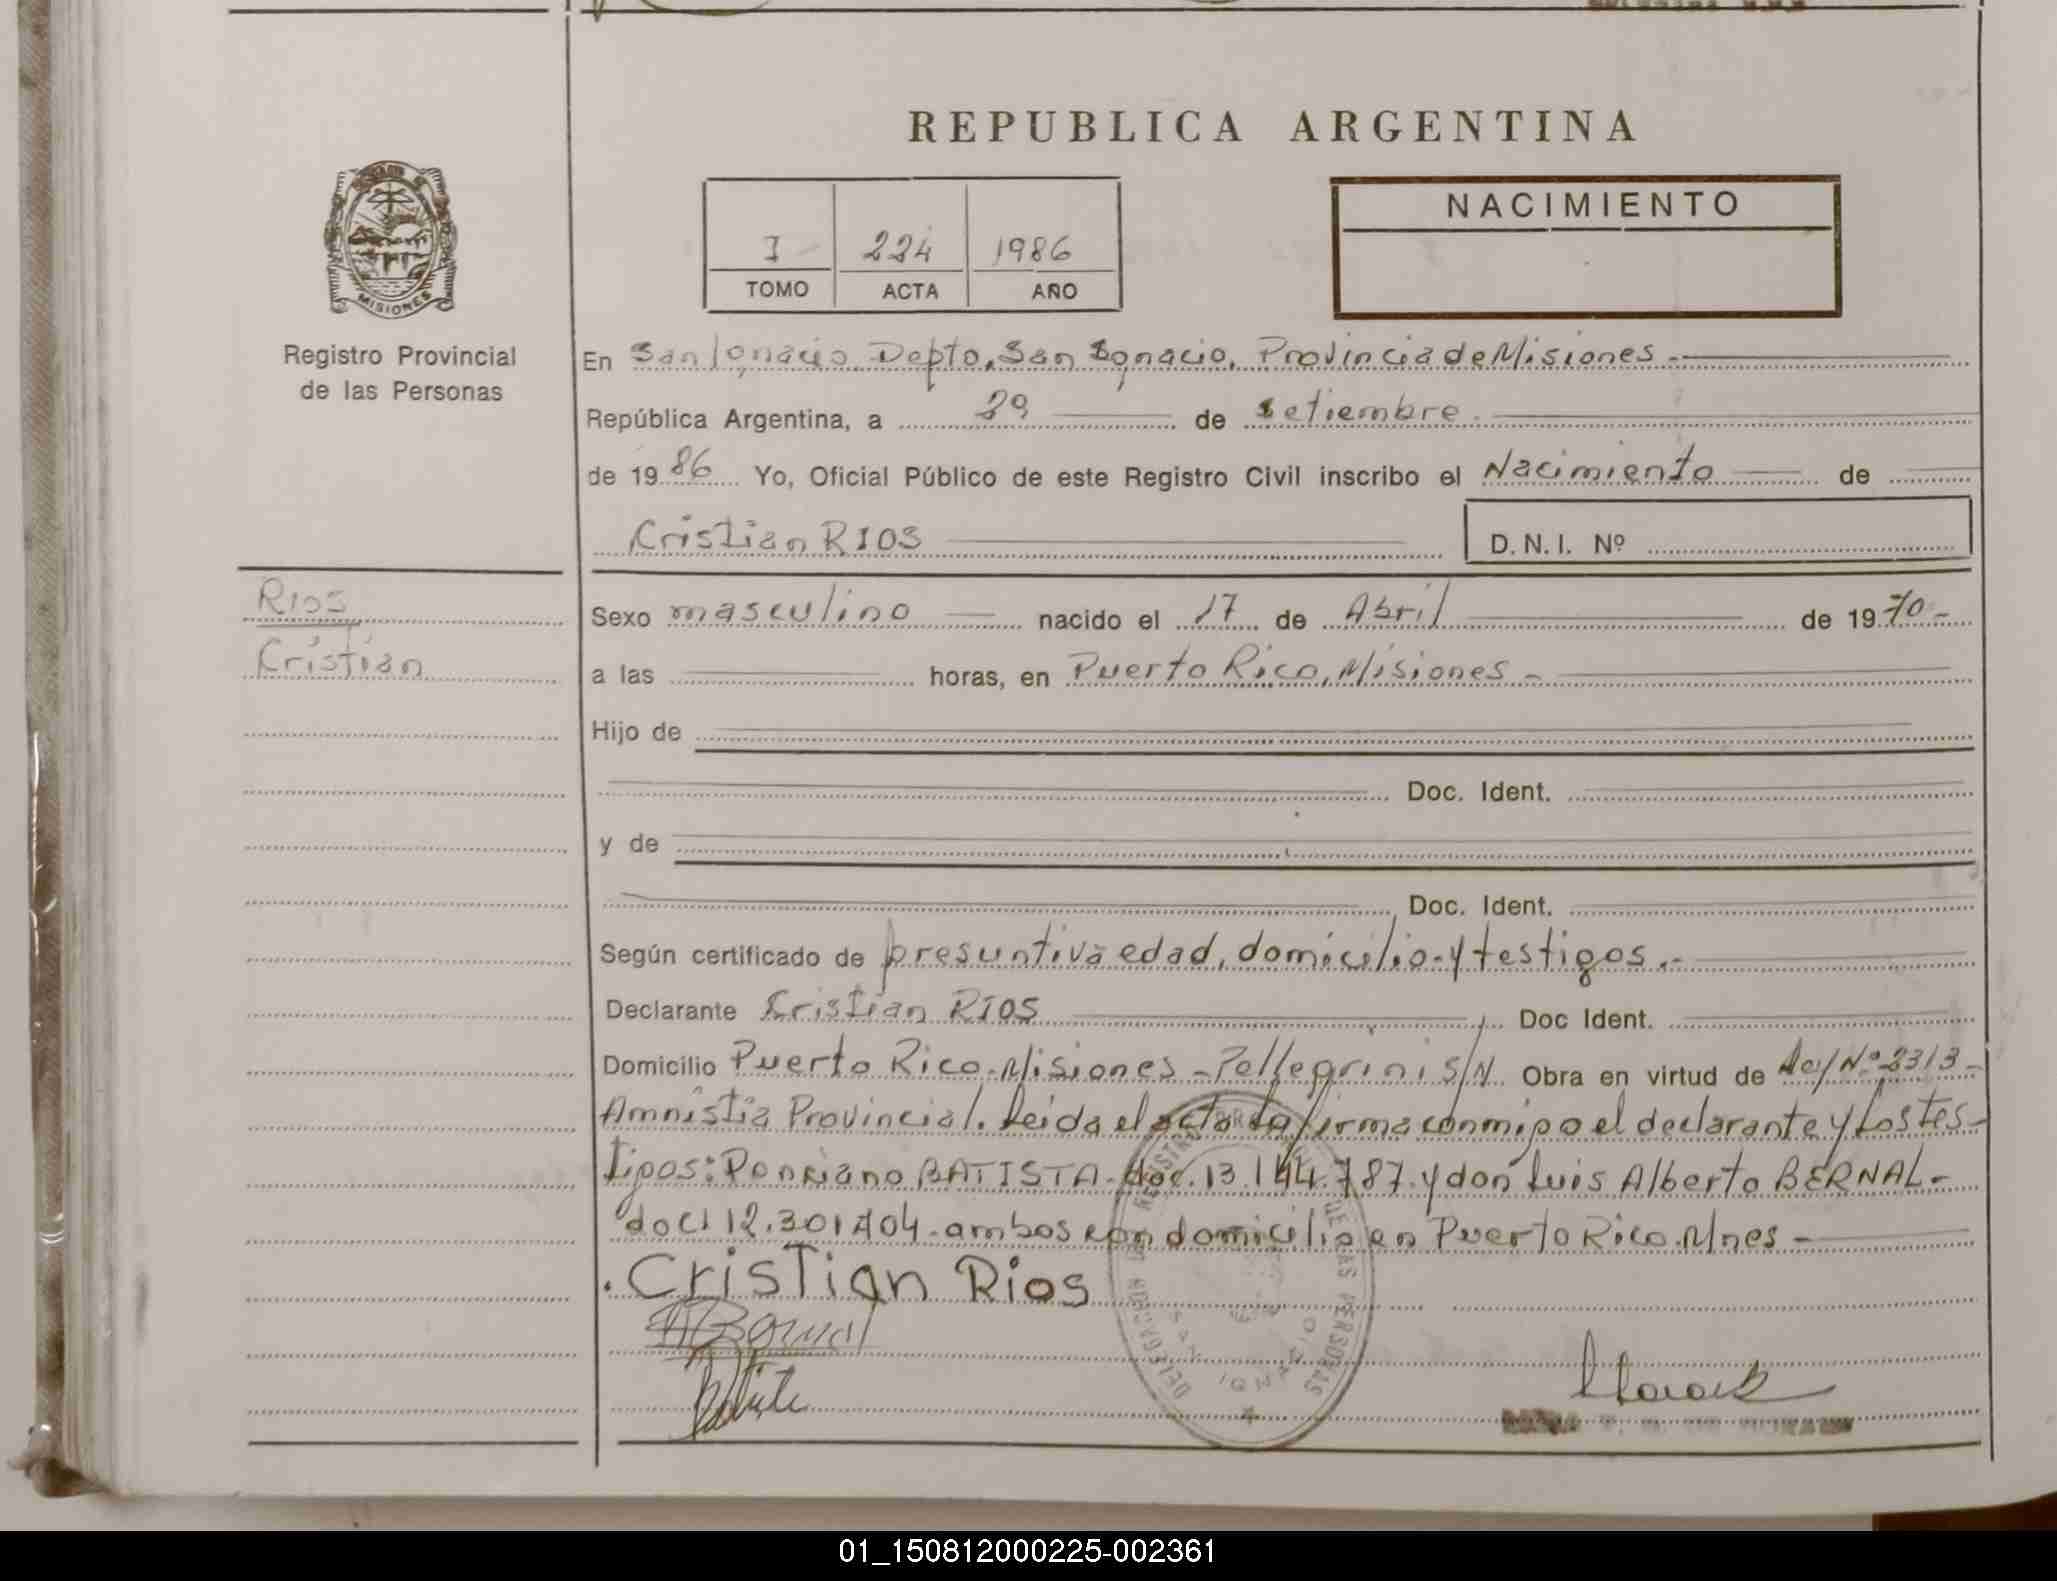 REPUBLICA ARGENTINA
NACIMIENTO
I 224 1986
TOMO ACTA AÑO
MISIONES
Registro Provincial
de las Personas
En San Ignacio Depto, San Ignacio, Provincia de Misiones.-
República Argentina, a 29 de setiembre.
de 1986 Yo, Oficial Público de este Registro Civil inscribo el Nacimiento de
Cristian RIOS D.N.I. Nº
Rios
Cristian
Sexo masculino nacido el 17 de Abril de 1970-
a las horas, en Puerto Rico, Misiones-
Hijo de
Doc. Ident.
y de
Doc. Ident.
Según certificado de presuntiva edad, domicilio y testigos.-
Declarante Cristian RIOS Doc Ident.
Domicilio Puerto Rico-Misiones-Pellegrini S/N. Obra en virtud de Ley Nº 2313-
Amnistia Provincial. Leida el acta la firma conmigo el declarante y Los tes-
tigos: BATISTA-doc. 13.144.787. y don Luis Alberto BERNAL-
doc 12.301.404-ambos con domicilio en Puerto Rico. Mnes-
Cristian Rios
Bernal
REGISTRO PROVINCIAL DE LAS PERSONAS
DELEGACION
SAN IGNACIO
01_150812000225-002361